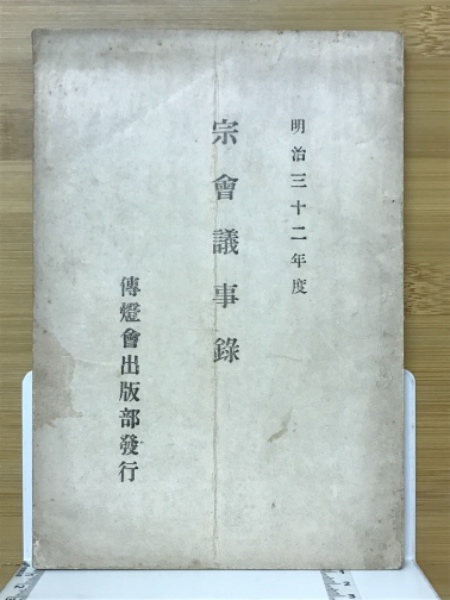 明治三十二年度
宗會議事錄
傳燈會出版部發行